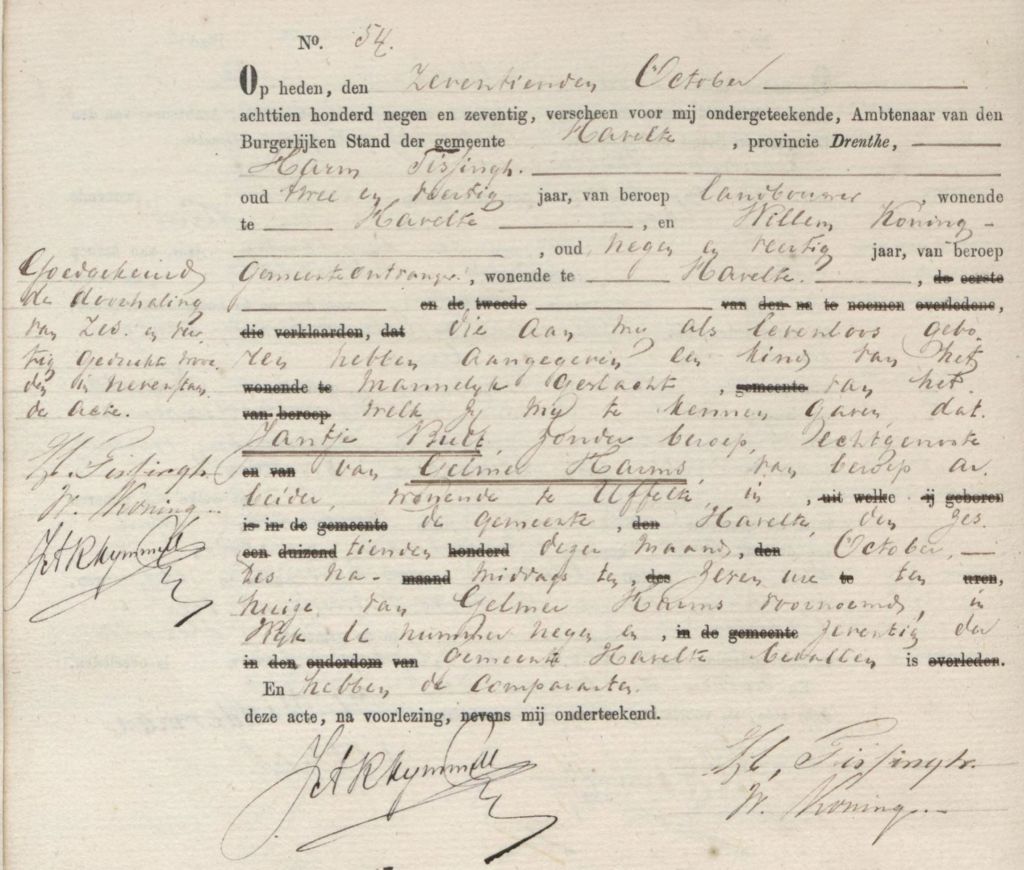 No. 54.
Op heden, den zeventienden October
achttien honderd negen en zeventig, verscheen voor mij ondergeteekende, Ambtenaar van den
Burgerlijken Stand der gemeente Havelte, provincie Drenthe,
Harm Tissingh.
oud twee en veertig jaar, van beroep landbouwer, wonende
te Havelte, en Willem Koning
, oud negen en veertig jaar, van beroep
gemeenteontvanger, wonende te Havelte, de eerste
en de tweede van den na te noemen overledene,
die verklaarden, dat die aan my als levenloos gebo
ren hebben aangegeven een kind van het
wonende te mannelyk geslacht, gemeente van het
van beroep welk zy my te kennen gaven dat
Jantje Bult zonder beroep, echtgenoote
en van van Gelmer Harms van beroep ar
beider, wonende te Uffelte, in, uit welke zij geboren
is in de gemeente de gemeente, den Havelte, den zes
een duizend tienden honderd dezer maand, den October,
des na- maand middags ten, des zeven ure te ten uren,
huize van Gelmer Harms voornoemd, in
Wyk nummer negen en, in de gemeente zeventig der
in den ouderdom van gemeente Havelte bevallen is overleden.
En hebben de comparanten
deze acte, na voorlezing, nevens mij onderteekend.
H. Tissingh.
W. Koning.
Goedgekeurd
de doorhaling
van zes en veer
tig gedrukte woor
den in nevenstaan
de acte.
H. Tissingh.
W. Koning.